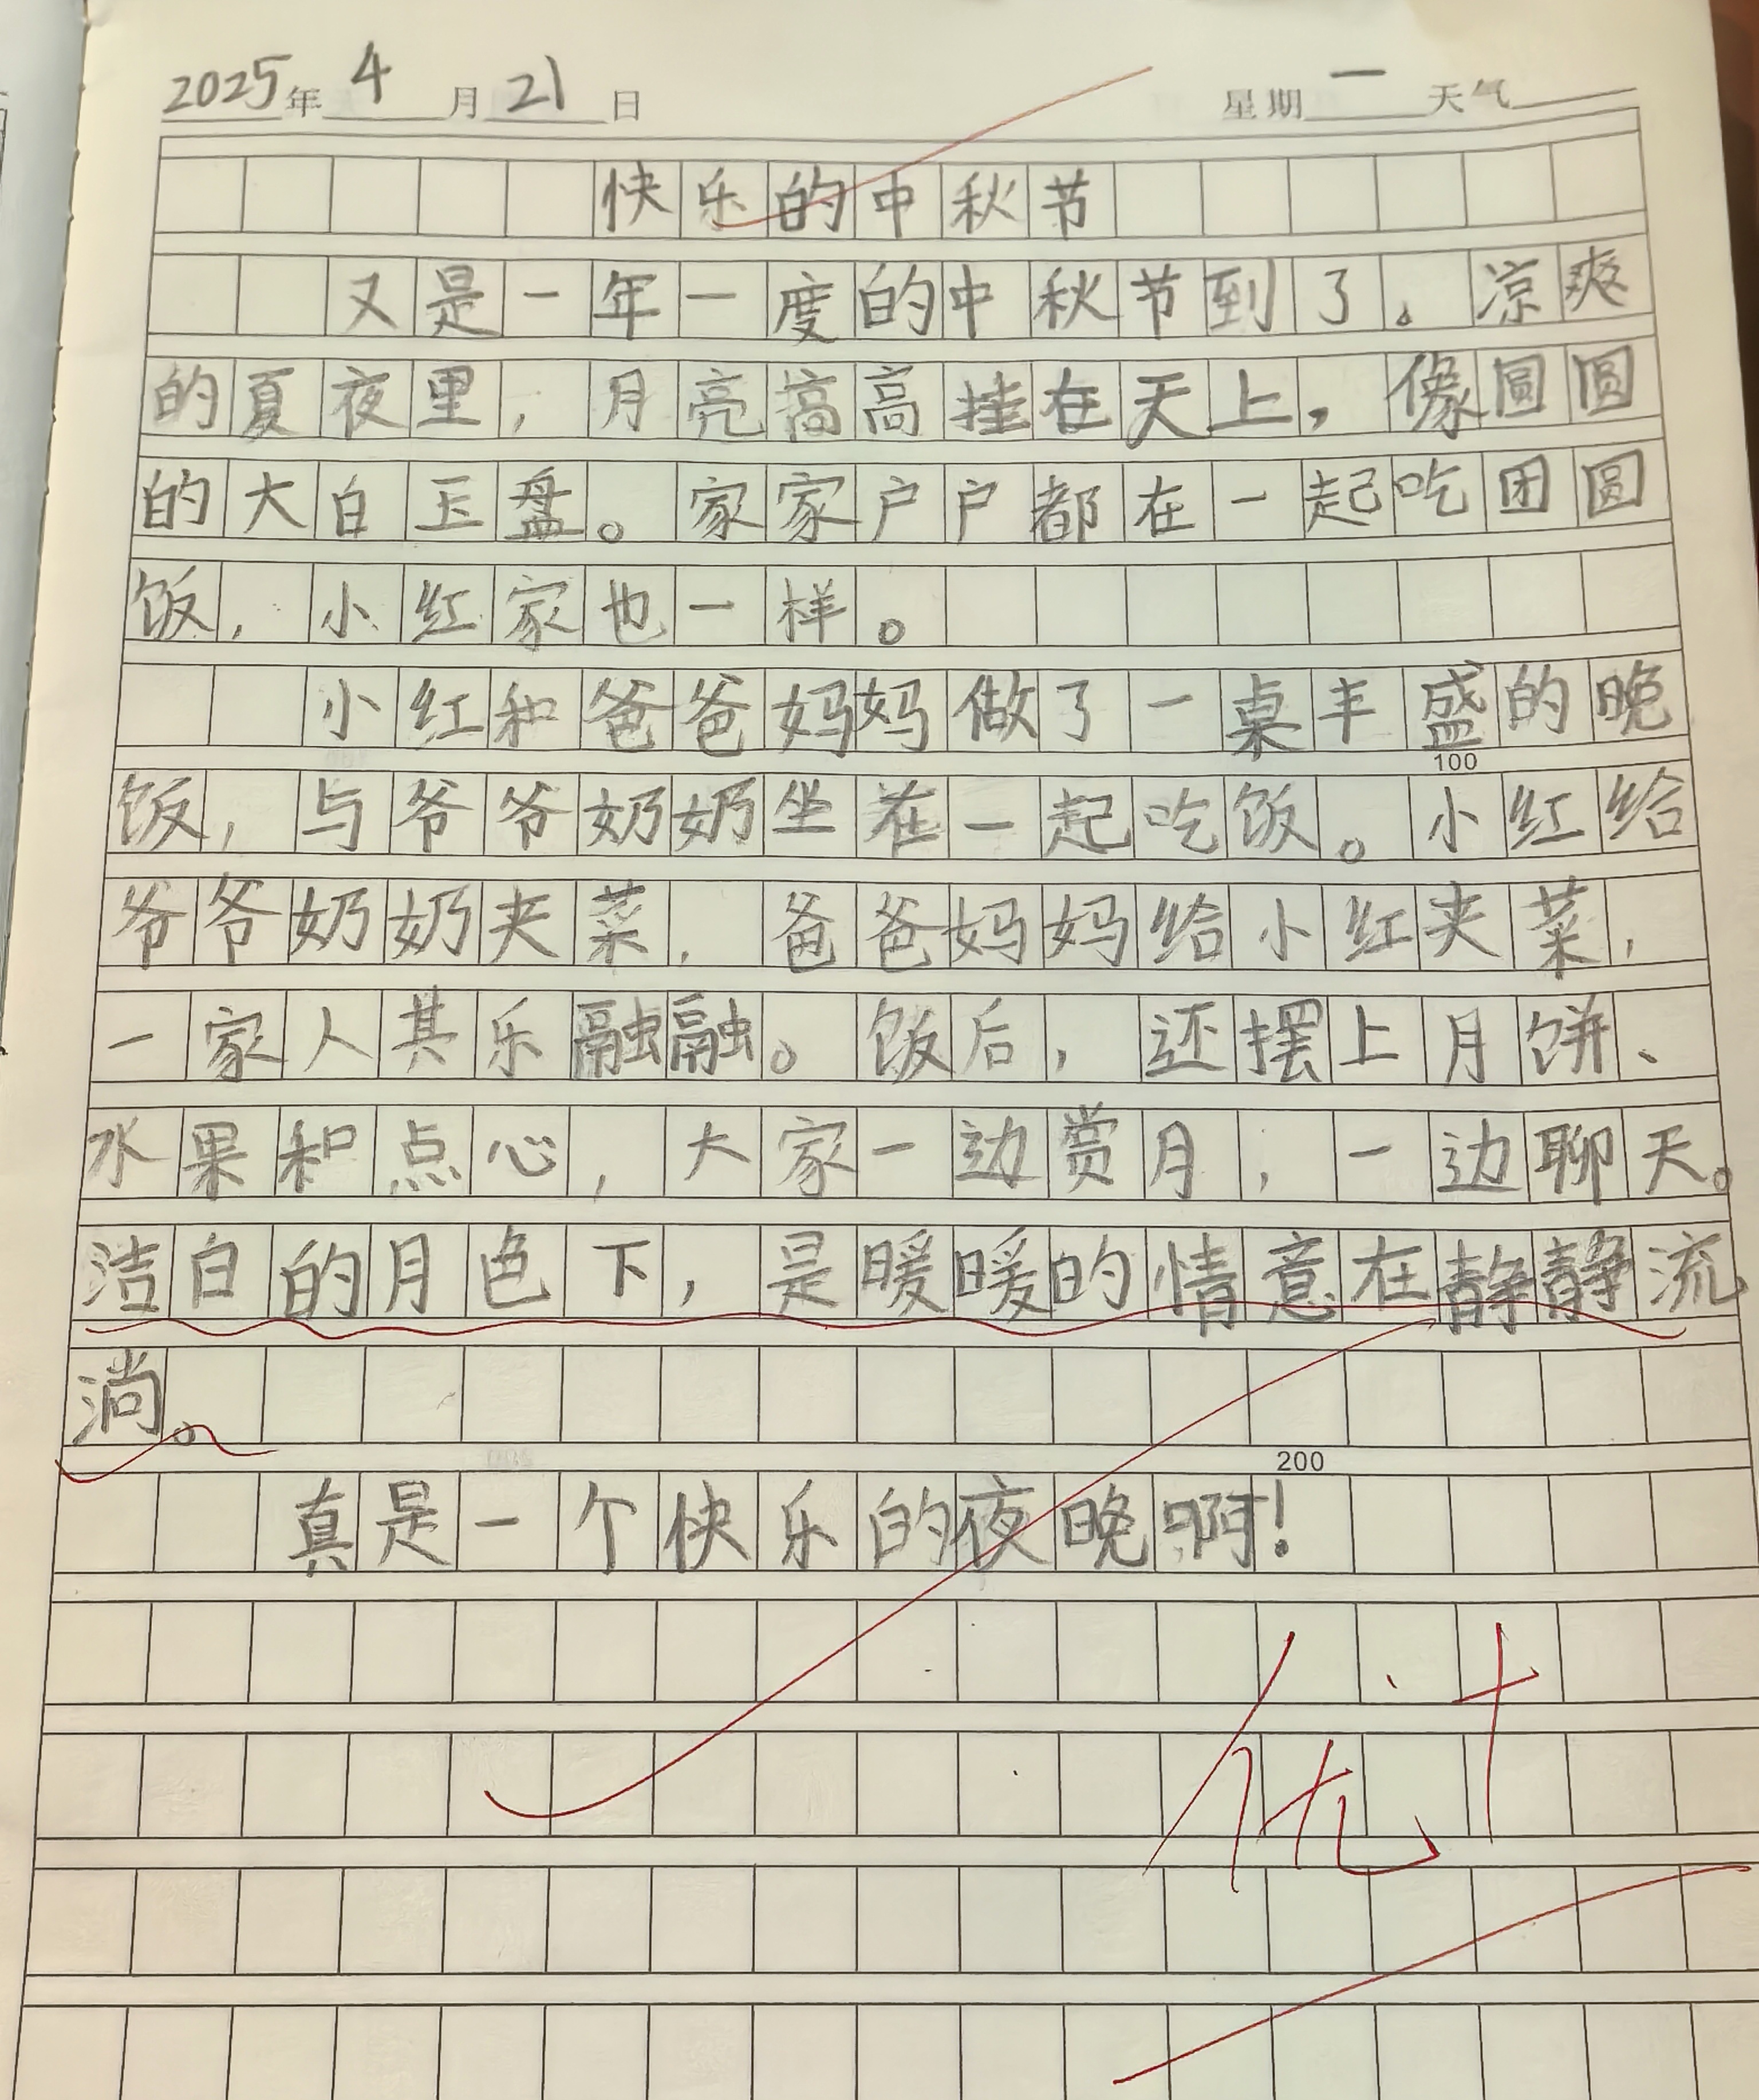 2025年4月21日 星期一天气
快乐的中秋节
又是一年一度的中秋节到了。凉爽
的夏夜里，月亮搞高挂在天上，像圆圆
的大白玉盘。家家户户都在一起吃团圆
饭，小红家也一样。
小红和爸爸妈妈做了一桌丰盛的晚
100
饭，与爷爷奶奶坐在一起吃饭。小红给
爷爷奶奶夹菜，爸爸妈妈给小红夹菜，
一家人其乐融融。饭后，还摆上月饼、
水果和点心，大家一边赏月，一边聊天。
洁白的月色下，是暖暖的情意在静静流
淌。
200
真是一个快乐的夜晚啊！
优+